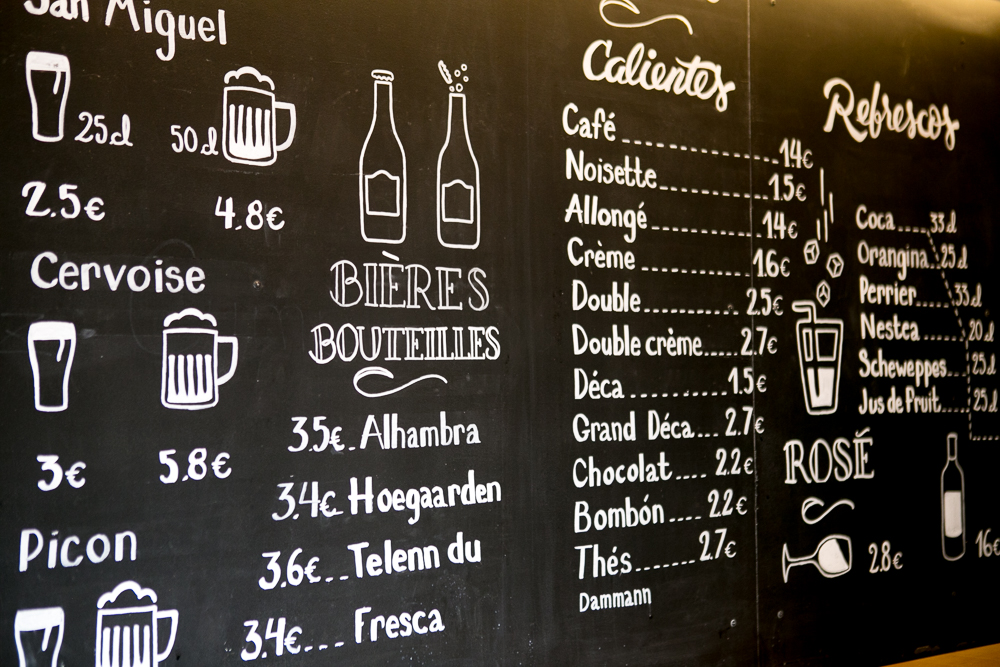 San Miguel
25cl 50cl
2.5€ 4.8€
Cervoise
3€ 5.8€
Picon
BIÈRES
BOUTEILLES
3.5€.. Alhambra
3.4€.. Hoegaarden
3.6€... Telenn du
3.4€.... Fresca
Calientes
Café ........ 1.4€
Noisette ........ 1.5€
Allongé ........ 1.4€
Crème ........ 1.6€
Double ........ 2.5€
Double crème..... 2.7€
Déca ........ 1.5€
Grand Déca.... 2.7€
Chocolat .... 2.2€
Bombón .... 2.2€
Thés....... 2.7€
Dammann
Refrescos
Coca.....33cl
Orangina..25cl
Perrier.....33cl
Nestea ......20cl
Scheweppes...25cl
Jus de Fruit....25cl
ROSÉ
2.8€ 16€